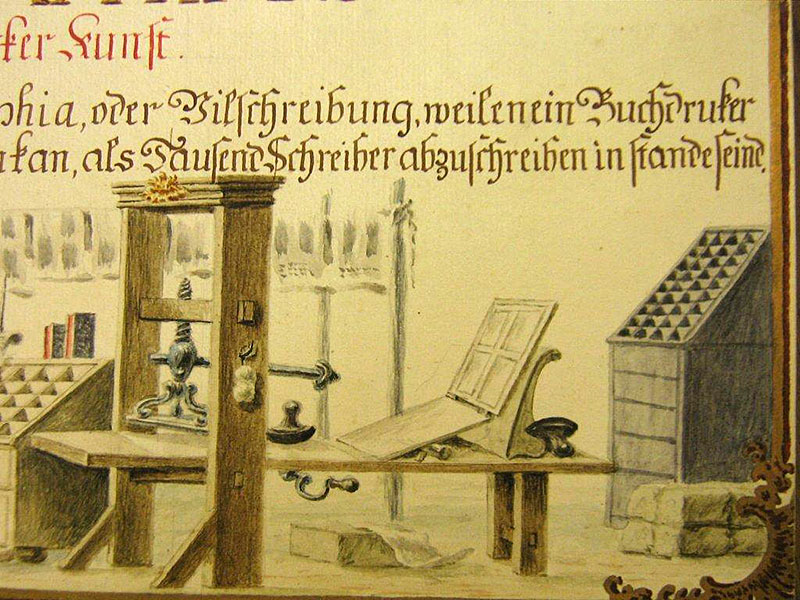 ker Kunst.
phia, oder Vilschreibung, weilen ein Buchdruker
kan, als Tausend Schreiber abzuschreiben in stande seind,